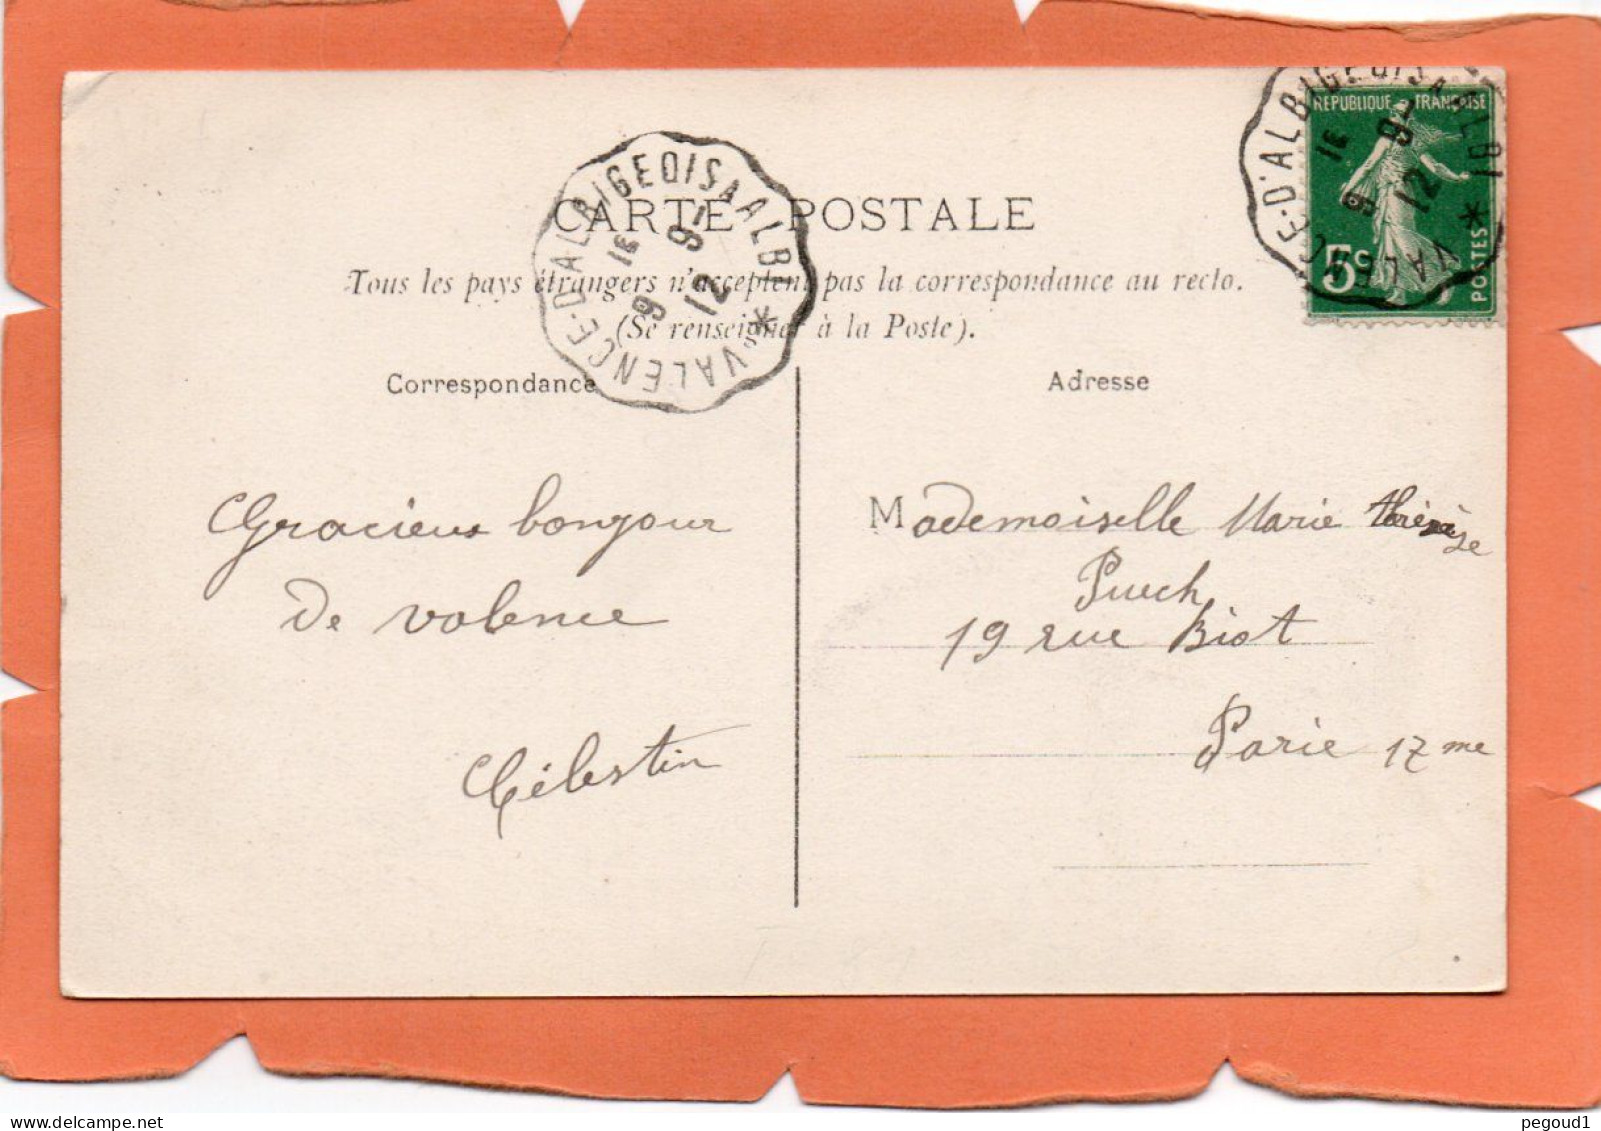 VALENCE-D'ALBIGEOIS A ALBI *
9 16
12 9-
REPUBLIQUE FRANÇAISE
5c
POSTES
VALENCE-D'ALBIGEOIS A ALBI *
9 16
12 9-
CARTE POSTALE
Tous les pays étrangers n'acceptent pas la correspondance au recto.
(Se renseigner à la Poste).
Correspondance
Adresse
Gracieux bonjour
de valence
Célestin
Mademoiselle Marie thérèse
Puech
19 rue Biot
Paris 17 me
delcampe.net
pegoud1